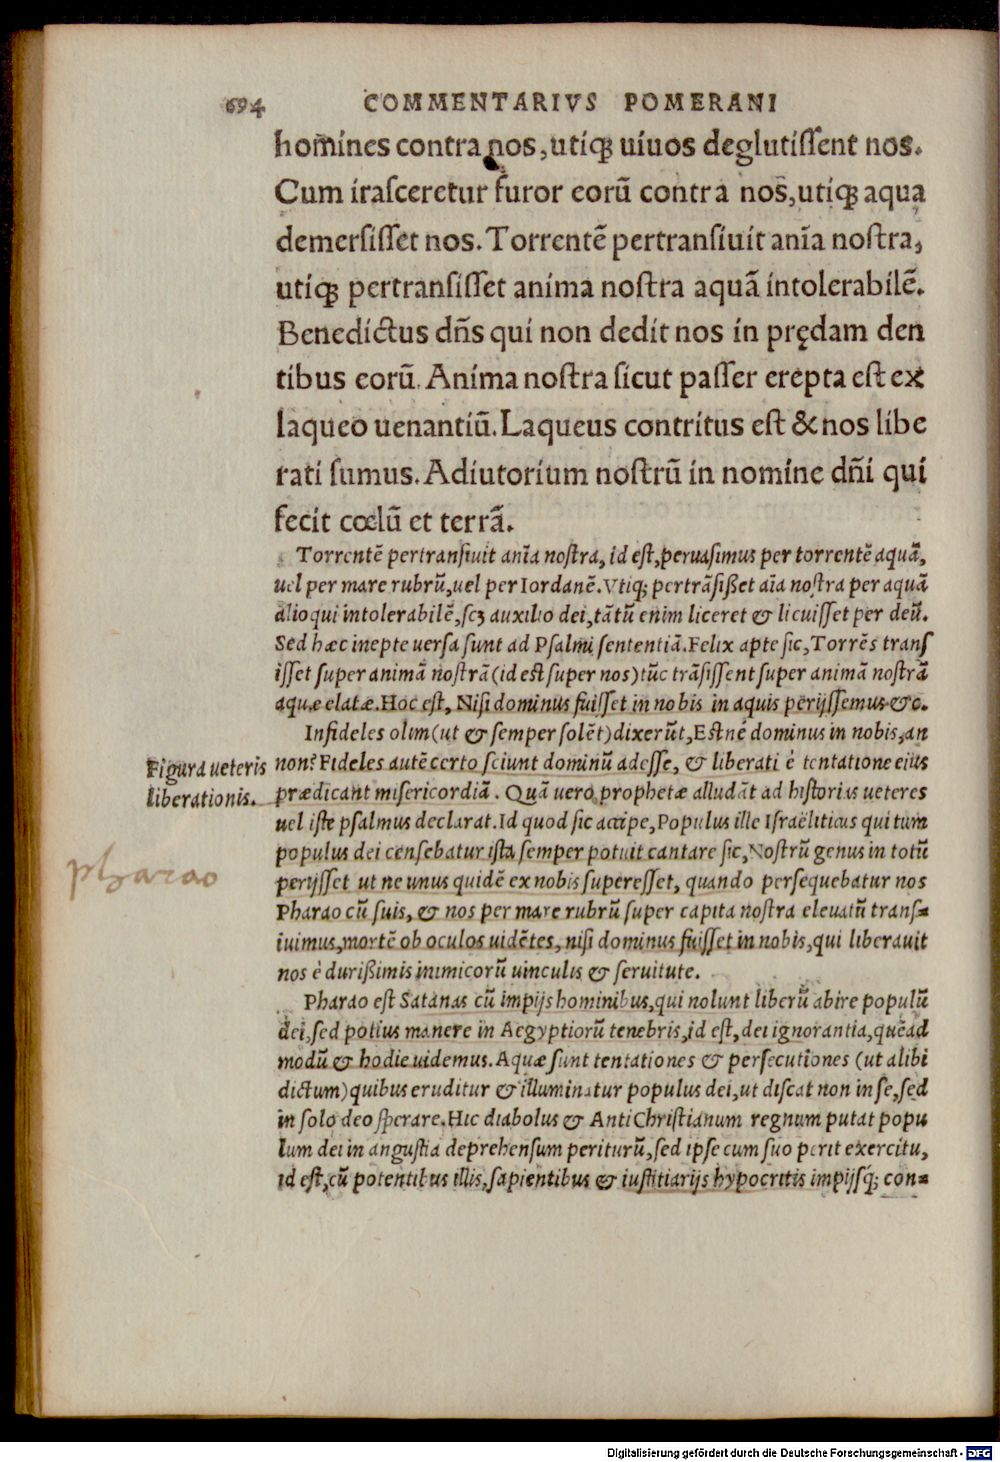 694 COMMENTARIVS POMERANI
homines contra nos, utiqꝫ uiuos deglutiſſent nos.
Cum iraſceretur furor eorū contra nos, utiqꝫ aqua
demerſiſſet nos. Torrentē pertranſiuit anīa noſtra,
utiqꝫ pertranſiſſet anima noſtra aquā intolerabilē.
Benedictus dn̄s qui non dedit nos in prędam den
tibus eorū. Anima noſtra ſicut paſſer erepta eſt ex
laqueo uenantiū. Laqueus contritus eſt & nos libe
rati ſumus. Adiutorium noſtrū in nomine dn̄i qui
fecit cœlū et terrā.
Torrentē pertranſiuit anīa noſtra, id eſt, peruaſimus per torrentē aquā,
uel per mare rubrū, uel per Iordanē. Vtiqꝫ pertrāſißet aīa noſtra per aquā
alioqui intolerabilē, ſcꝫ auxilio dei, tātū enim liceret & licuiſſet per deū.
Sed hæc inepte uerſa ſunt ad Pſalmi ſententiā. Felix apte ſic, Torrēs tranſ
iſſet ſuper animā noſtrā (id eſt ſuper nos) tūc trāſiſſent ſuper animā noſtrā
aquæ elatæ. Hoc eſt, Niſi dominus fuiſſet in nobis in aquis perijſſemus &c.
Infideles olim (ut & ſemper ſolēt) dixerūt, Eſtne dominus in nobis, an
Figura ueteris
liberationis.
non? Fideles autē certo ſciunt dominū adeſſe, & liberati è tentatione eius
prædicant miſericordiā. Quā uero prophetæ alludāt ad hiſtorias ueteres
uel iſte pſalmus declarat. Id quod ſic accipe, Populus ille Iſraëliticus qui tum
populus dei cenſebatur iſta ſemper potuit cantare ſic, Noſtrū genus in totū
pharao
perijſſet ut ne unus quidē ex nobis ſupereſſet, quando perſequebatur nos
Pharao cū ſuis, & nos per mare rubrū ſuper capita noſtra eleuatū tranſ-
iuimus, mortē ob oculos uidētes, niſi dominus fuiſſet in nobis, qui liberauit
nos è durißimis inimicorū uinculis & ſeruitute.
Pharao eſt Satanas cū impijs hominibus, qui nolunt liberū abire populū
dei, ſed potius manere in Aegyptiorū tenebris, id eſt, dei ignorantia, quēad
modū & hodie uidemus. Aquæ ſunt tentationes & perſecutiones (ut alibi
dictum) quibus eruditur & illuminatur populus dei, ut diſcat non in ſe, ſed
in ſolo deo ſperare. Hic diabolus & AntiChriſtianum regnum putat popu
lum dei in anguſtia deprehenſum periturū, ſed ipſe cum ſuo perit exercitu,
id eſt, cū potentibus illis, ſapientibus & iuſtitiarijs hypocritis impijſqꝫ con-
Digitalisierung gefördert durch die Deutsche Forschungsgemeinschaft - DFG